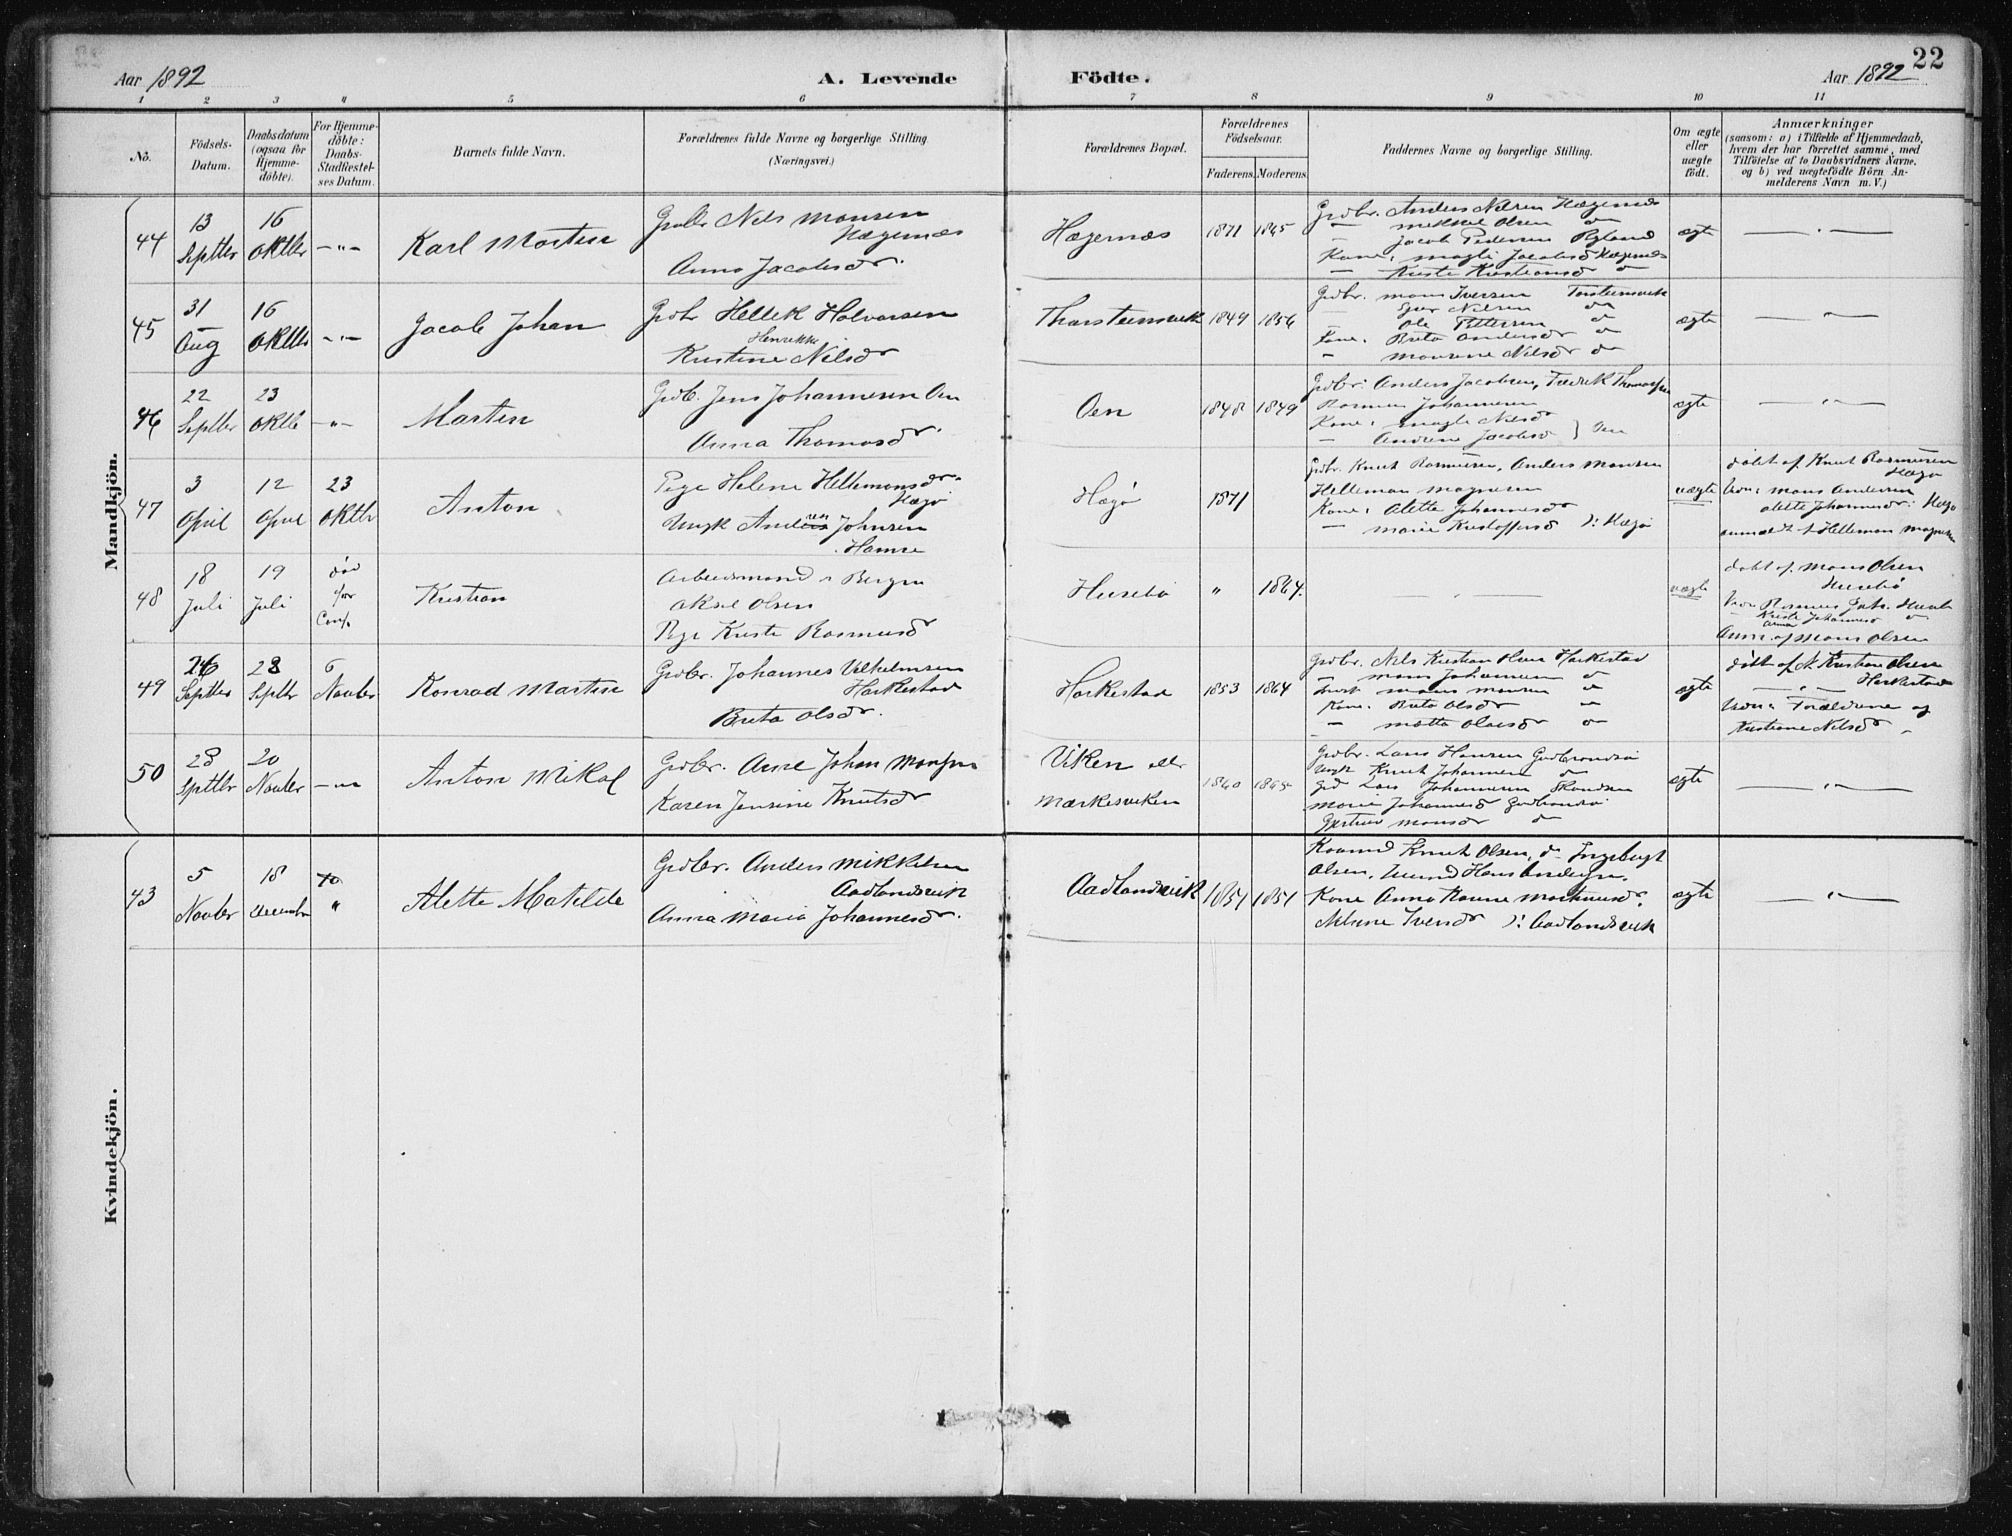 22
Aar 1892 A. Levende Födte. Aar 1892
1 2 3 4 5 6 7 8 9 10 11
No.
Födsels-
Datum.
Daabsdatum
(ogsaa for
Hjemme-
döbte).
For Hjemme-
döbte:
Daabs-
Stadfæstel-
ses Datum.
Barnets fulde Navn.
Forældrenes fulde Navne og borgerlige Stilling.
(Næringsvei.)
Forældrenes Bopæl.
Forældrenes
Födselsaar.
Faderens. Moderens.
Faddernes Navne og borgerlige Stilling.
Om ægte
eller
uægte
födt.
Anmærkninger
(saasom: a) i Tilfælde af Hjemmedaab,
hvem der har forrettet samme, med
Tilföielse af to Daabsvidners Navne,
og b) ved uægtefödte Börn An-
melderens Navn m. V.)
Mandkjön.
44
13
Septbr
16
Oktbr
— " —
Karl Martin
Gbr Nils Monsen
Hægernæs
Anna Jacobsdr.
Hægernæs
1871 1865
Grdbr. Anders Nilsen Hægernæs
— Mikkel Olsen do
— Jacob Pedersen Byland
Kone: Magli Jacobsd Hægernæs
— Kirste Kristiansd do
ægte
— " —
45
31
Aug
16
Oktbr
— " —
Jacob Johan
Grdbr Hellek Halvorsen
Henrikke
Kristine Nilsdr
Thorsteinsvik
1849 1856
Grdbr. Mons Iversen Torsteinsvik
— Nilsen do
— Ole Pettersen do
Kone. Brita Andersdr do
— Monsine Nilsdr do
ægte
— " —
46
22
Septbr
23
Oktb
— " —
Martin
Grdb. Jens Johannesen Øen
Anna Thomasdr.
Øen
1848 1849
Grdbr: Anders Jacobsen, Fredrik Thomassen
Rasmus Johannesen
Kone: Magli Nilsdr
— Andrine Jacobsd } Øen
ægte
— " —
47
3
April
12
April
23
Oktbr
Anton
Pige Helene Hellemonsdr.
Hægø
Ungk Andreas Johnsen
Hamre
Hægø
1871
Grdbr. Knut Rasmusen, Anders Monsen
Helleman Magnesen
Kone: Alette Johannesdr
— Marie Kristoffersd ): Hægø
uægte
döbt af Knut Rasmusen
Hægø
Vidn: Mons Andersen
Alette Johannesdr: Hægø
anmeldt af Helleman Magnesen
48
18
Juli
19
Juli
död
før
Conf.
Kristian
Arbeidsmand i Bergen
Aksel Olsen
Pige Kirste Rasmusd
Husebø
" 1867.
— " —
uægte
døbt af. Mons Olsen
Husebö
Vidn Rasmus Joh. Husebø
Kirste Johannesd do
Anna
Anm. af Mons Olsen
49
26
Septbr
28
Septbr
6
Novbr
Konrad Martin
Grdbr. Johannes Vilhelmsen
Harkestad
Brita Olsdr.
Harkestad
1853 1864
Grdbr. Nils Kristian Olsen Harkestad
— Mons Johannesen do
Mons Monsen do
Kone. Brita Olsdr do
— Matta Olsdr do
ægte
döbt af N. Kristian Olsen
Harkestad
— " —
Vidn: Forældrene og
Kristiane Nilsdr
50
28
Septbr
20
Novbr
— " —
Anton Mikal
Grdbr. Arne Johan Monsen
Karen Jensine Knutsdr
Viken ell
Mærkesviken
1860 1865
Grdbr. Lars Hansen Gudbrandsö
Ungk Knut Johannesen do
Lars Johannesen
Marie Johannesd Gudbrandsö
Gjertrud Monsdr do
ægte
— " —
Kvindekjön.
43
5
Novbr
18
December
"
Alette Matilde
Grdbr. Anders Mikkelsen
Aadlandsvik
Anna Maria Johannesdr.
Aadlandsvik
1854 1851
Kaarmd Knut Olsen, do Ingebrigt
Olsen, Hans Andersen.
Kone Anna Karine Martinusdr,
Nilsine Iversdr ): Aadlandsvik
ægte
— " —